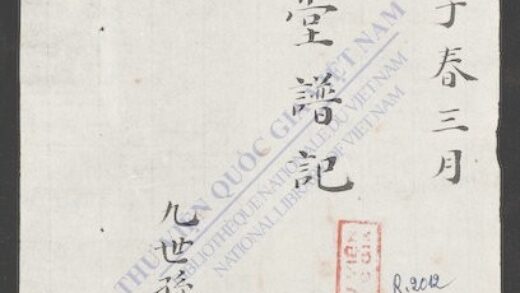 子春三月
堂譜記
九世孫
THƯ VIỆN QUỐC GIA VIỆT NAM
BIBLIOTHÈQUE NATIONALE DU VIETNAM
NATIONAL LIBRARY OF VIETNAM
R.2012